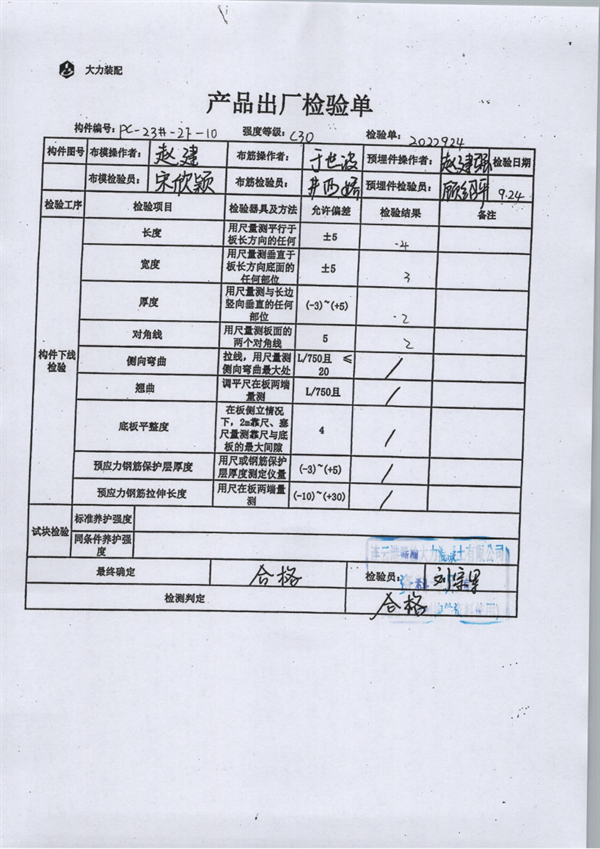 大力装配
产品出厂检验单
构件编号: PC-23#-2F-10 强度等级: C30 检验单: 2022924
构件图号 布模操作者: 赵建 布筋操作者: 于世 预埋件操作者: 赵建强 检验日期
布模检验员: 宋欣颖 布筋检验员: 预埋件检验员: 9.24
检验工序 检验项目 检验器具及方法 允许偏差 检验结果 备注
构件下线检验
长度 用尺量测平行于板长方向的任何 ±5 -4
宽度 用尺量测垂直于板长方向底面的任何部位 ±5 3
厚度 用尺量测与长边竖向垂直的任何部位 (-3)~(+5) -2
对角线 用尺量测板面的两个对角线 5 2
侧向弯曲 拉线，用尺量测侧向弯曲最大处 L/750且 ≤20 /
翘曲 调平尺在板两端量测 L/750且 /
底板平整度 在板侧立情况下，2m靠尺、塞尺量测靠尺与底板的最大间隙 4 /
预应力钢筋保护层厚度 用尺或钢筋保护层厚度测定仪量 (-3)~(+5) /
预应力钢筋拉伸长度 用尺在板两端量测 (-10)~(+30) /
试块检验 标准养护强度
同条件养护强度
最终确定 合格 检验员: 刘宗
检测判定 合格